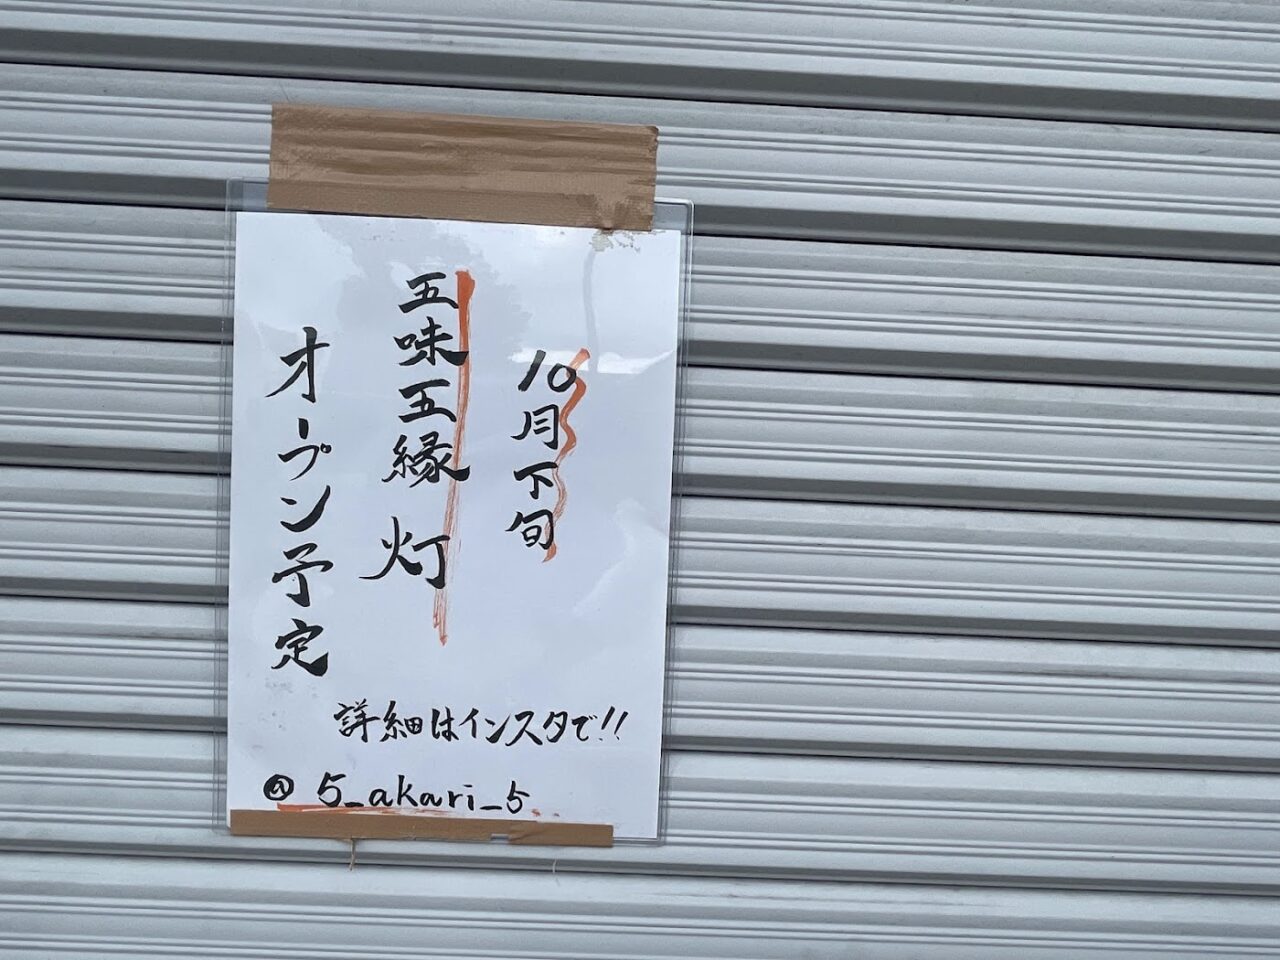 10月下旬
五味五縁 灯
オープン予定
詳細はインスタで!!
@ 5_akari_5